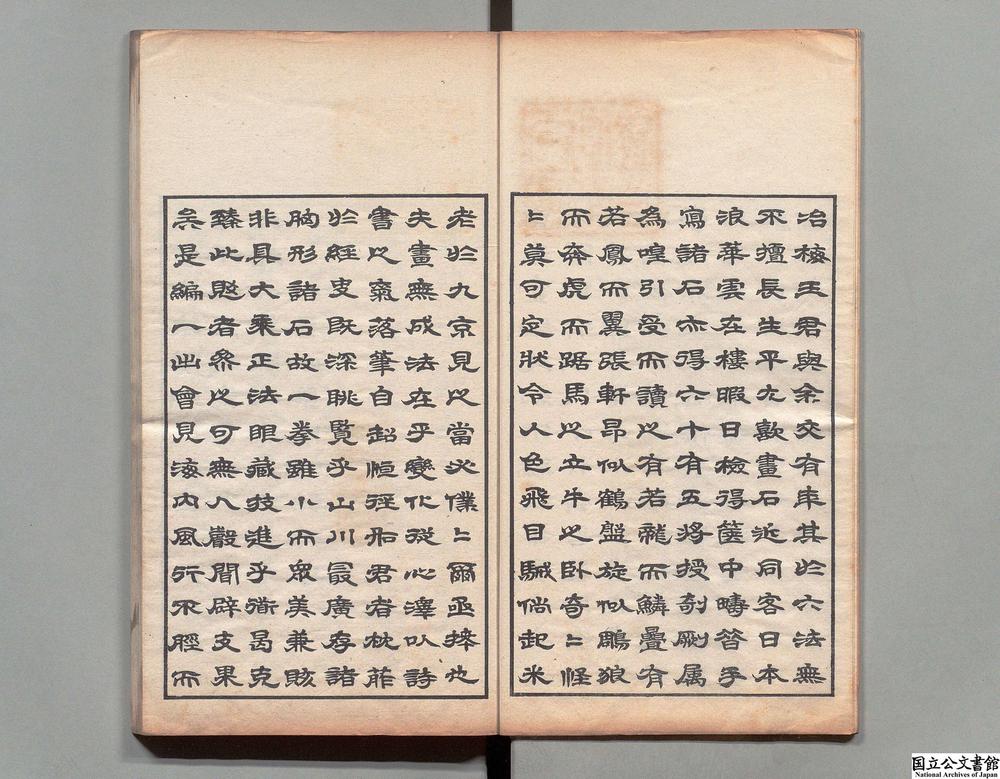 冶梅王君與余交有年其於六法無
不擅長生平尤歡畫石近同客日本
浪華雲在樓暇日檢得篋中疇昔手
寫諸石亦得六十有五將授剞劂属
為喤引受而讀之有若龍而鱗疊有
若鳳而翼張軒昂似鶴盤旋似鵰狼
而奔虎而踞馬之立牛之卧奇〻怪
〻莫可定狀令人色飛目駴倘起米
老於九京見之當必僕〻爾亟拜也
夫畫無成法在乎變化從心澤以詩
書之氣落筆自超恒徑如君者枕葄
於經史既深眺覽乎山川最廣存諸
胸形諸石故一拳雖小而眾美兼賅
非具大乘正法眼藏技進乎術曷克
臻此者參之可無入聲聞辟支果
矣是編一出會見海内風行不脛而
国立公文書館
National Archives of Japan